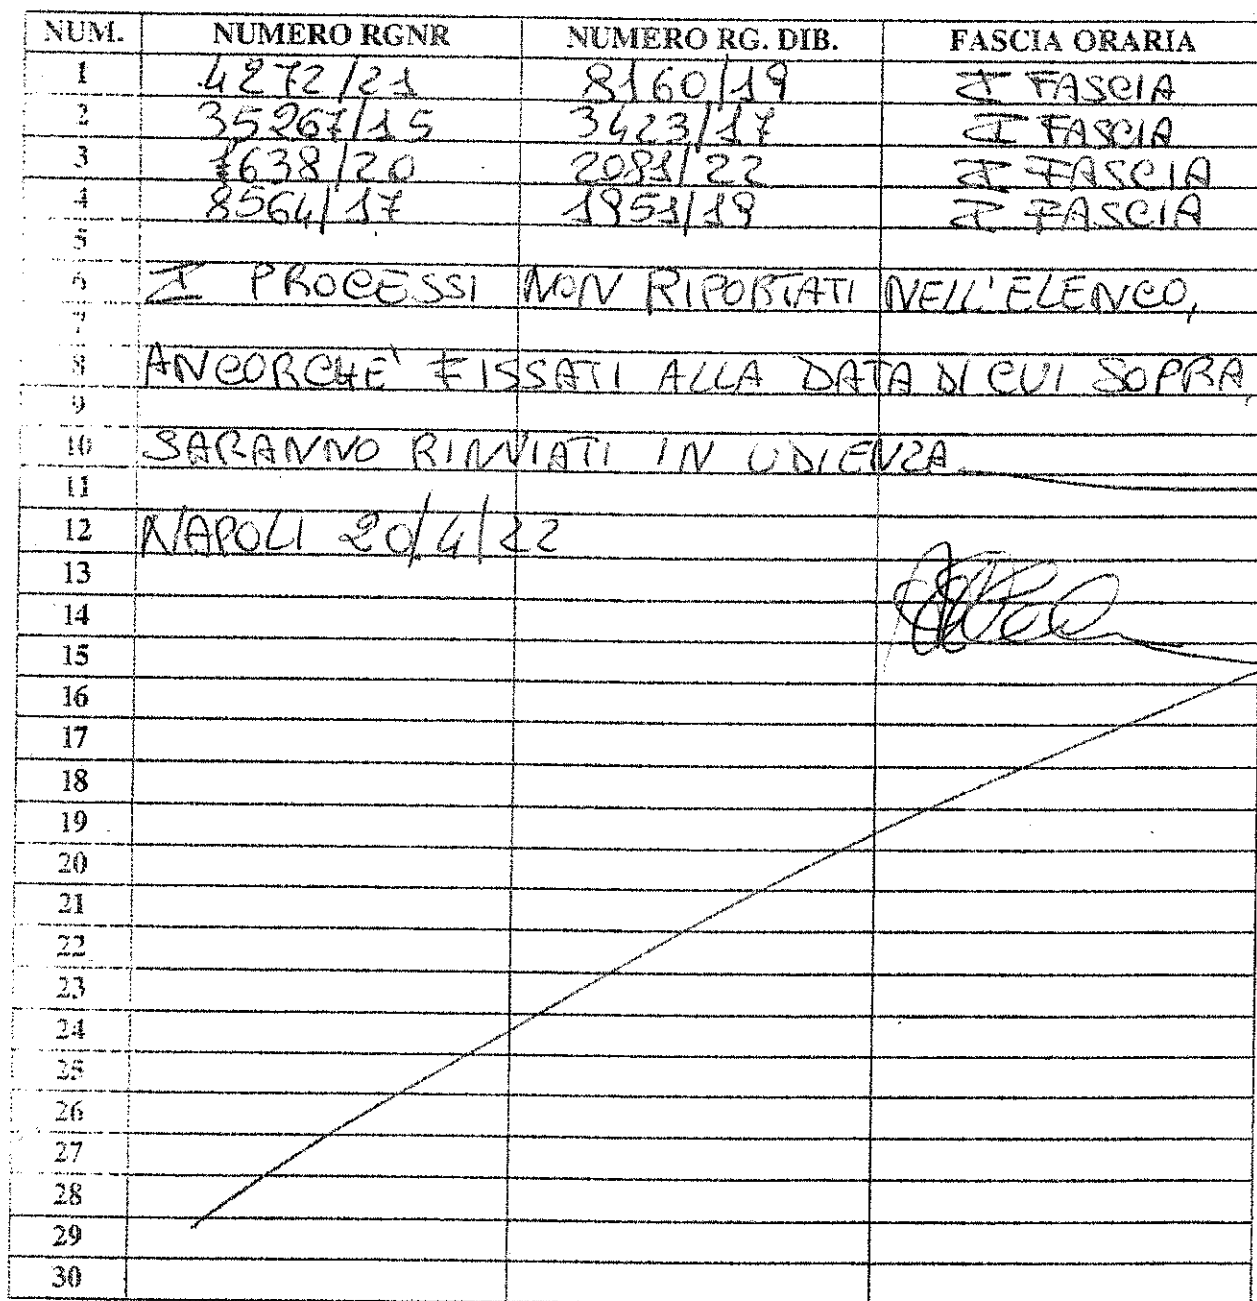 NUM. NUMERO RGNR NUMERO RG. DIB. FASCIA ORARIA
1 4272/21 8160/19 I FASCIA
2 35267/15 3423/17 I FASCIA
3 1638/20 2081/22 I FASCIA
4 8564/17 1951/19 I FASCIA
5
6 I PROCESSI NON RIPORTATI NELL'ELENCO,
7
8 ANCORCHE' FISSATI ALLA DATA DI CUI SOPRA,
9
10 SARANNO RINVIATI IN UDIENZA
11
12 NAPOLI 20/4/22
13
14
15
16
17
18
19
20
21
22
23
24
25
26
27
28
29
30